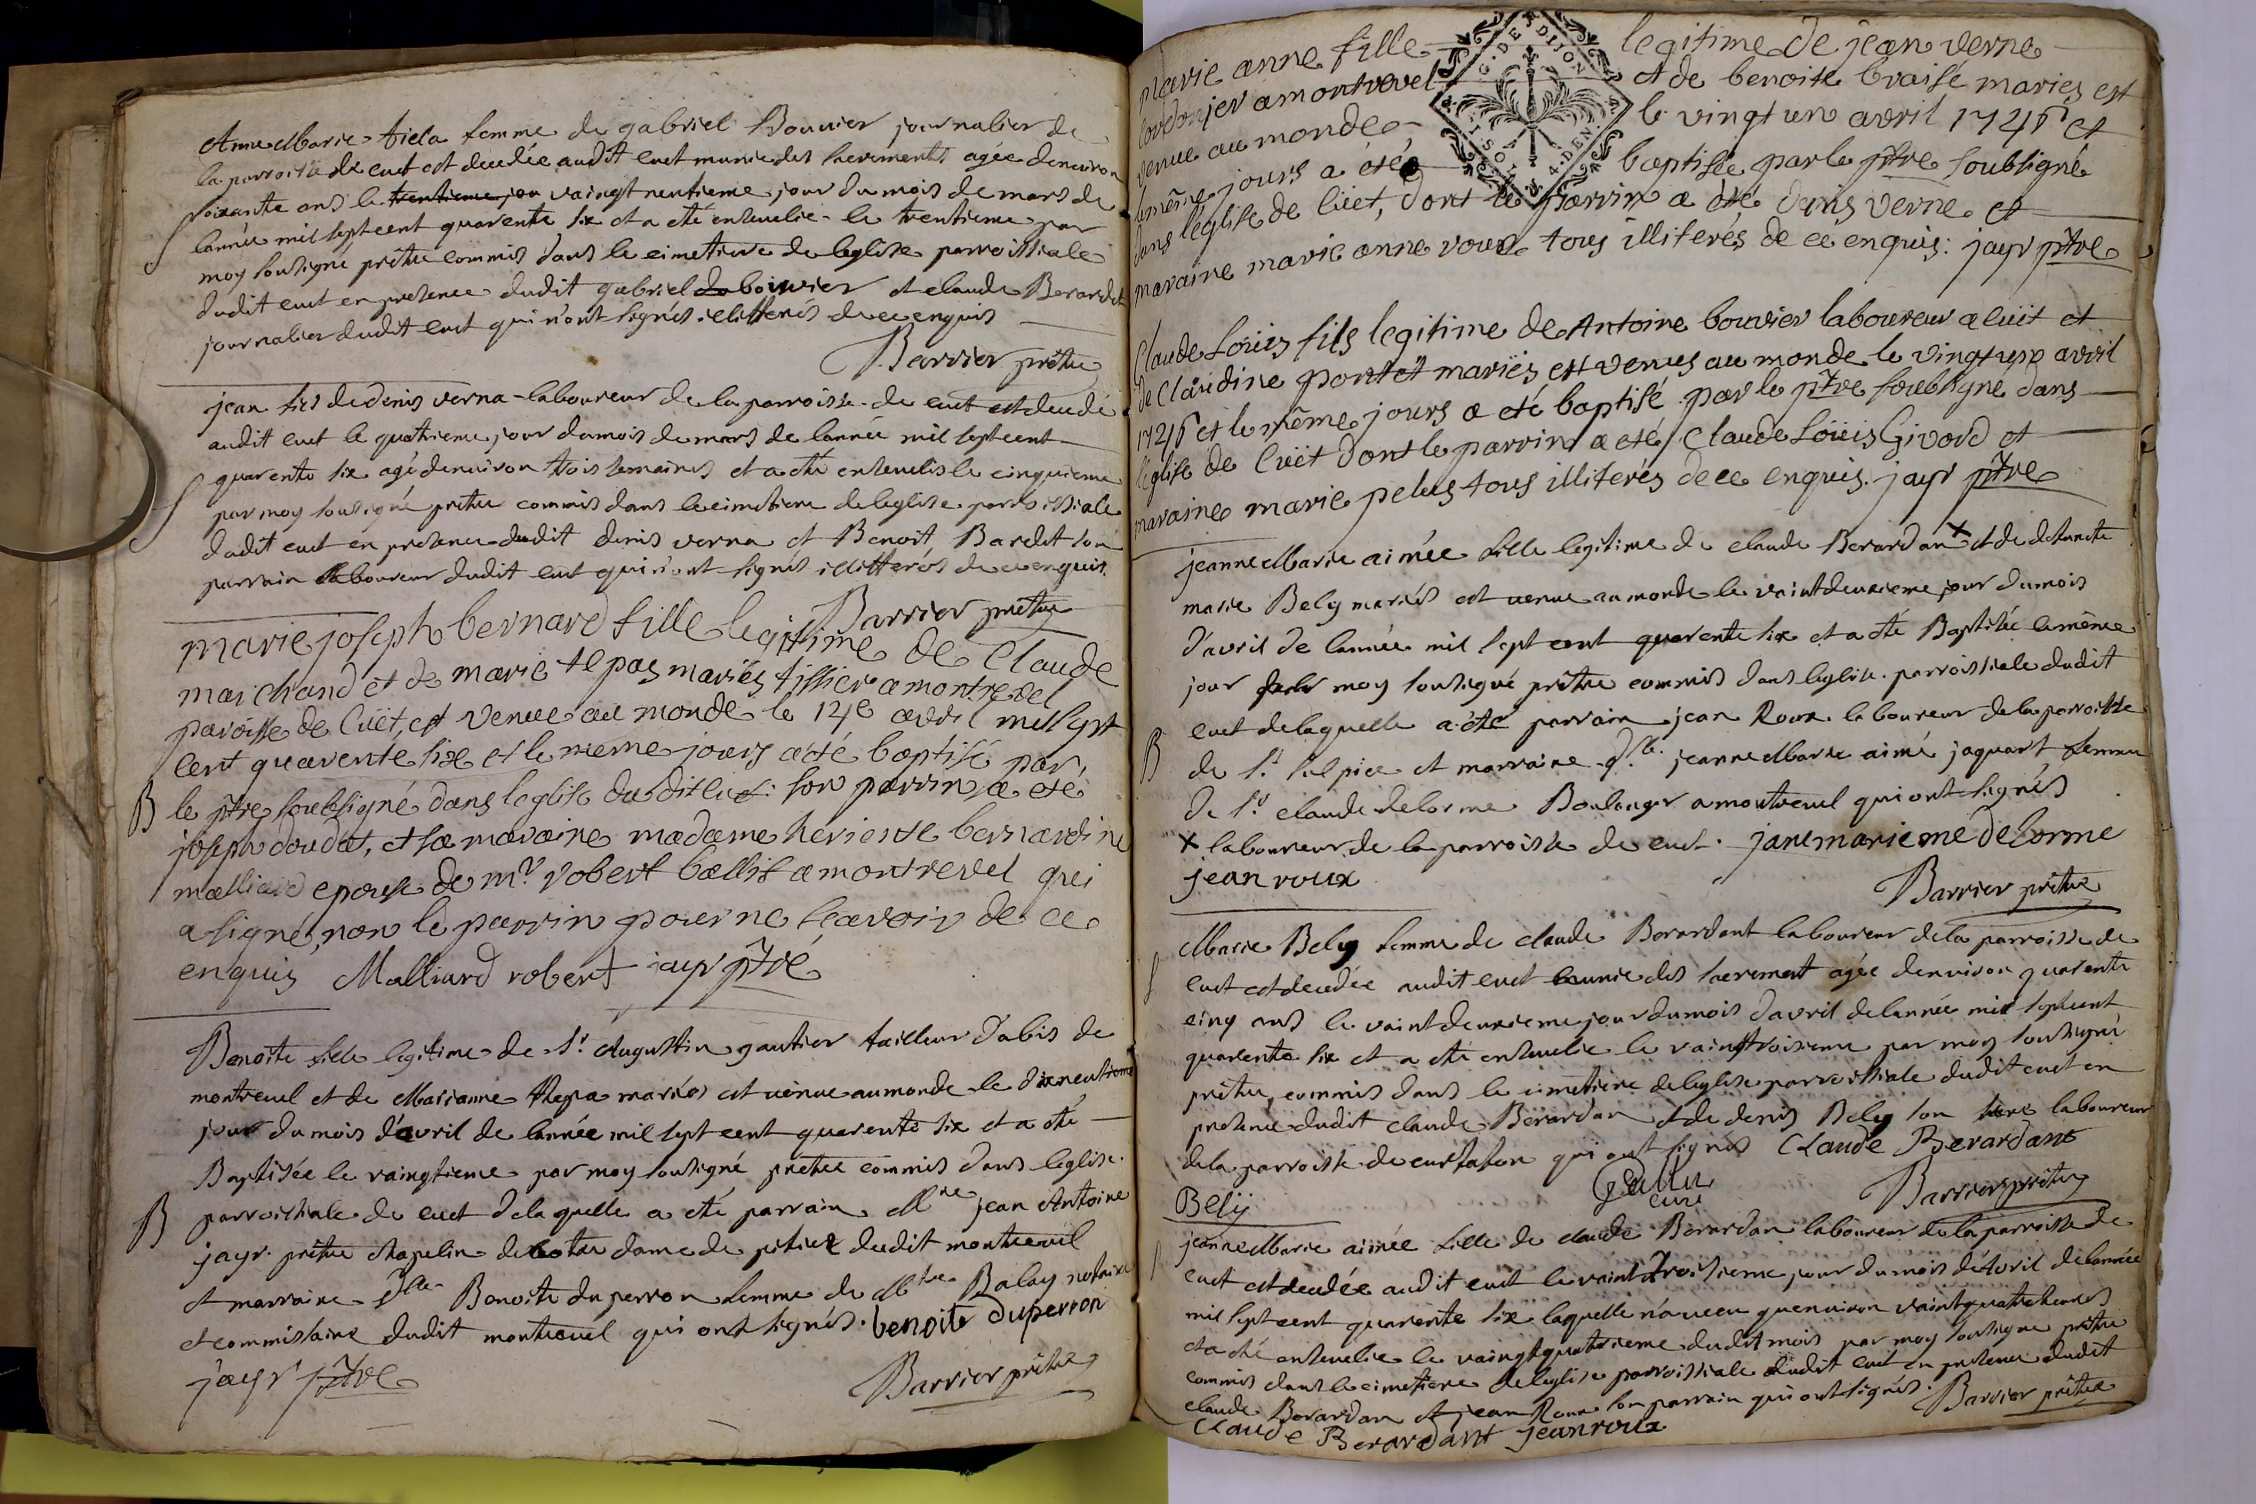 Anne Marie fiela femme de gabriel Bouvier journalier de
la parroisse de cuet est decedée audit cuet munie des sacrements agée denviron
soixante ans le trentieme jou vaingt neufieme jour du mois de mars de
S lannée mil sept cent quarente six et a eté ensevelie le trentieme par
moy soussigné prêtre commis dans le cimetiere de leglise parroissiale
dudit cuet en presence dudit gabriel bouvier et claude Berardet
journalier dudit cuet qui n'ont signés illitterés de ce enquis
Barrier prêtre
jean fils de denis verna laboureur de la parroisse de cuet est decedé
audit cuet le quatrieme jour du mois de mars de lannée mil sept cent
quarente six agé denviron trois semaines et a eté ensevelis le cinquieme
S par moy soussigné prêtre commis dans le cimetiere de leglise parroissiale
dudit cuet en presence dudit denis verna et Benoit Bardet son
parrain laboureur dudit cuet qui n'ont signés illitterés de ce enquis.
Barrier prêtre
marie joseph bernard fille legitime de Claude
marchand et de marie tepas mariés tissier a montrevel
paroisse de Cüet, est venue au monde le 14e avril mil sept
cent quarente six et le meme jours a eté baptisé par
B le ptre soubsigné dans leglise du dit cuet: son parrin a eté
joseph doudet, et sa maraine madame heriente bernardine
malliard epouse de mr robert baillif a montrevel qui
a signé, non le parrin pour ne sçavoir de ce
enquis Malliard robert jayr ptre
Benoite fille legitime de sr Augustin gautier tailleur d'abis de
montrevel et de Marianne Repa mariés est venue au monde le dixneufieme
jour du mois d'avril de lannée mil sept cent quarente six et a eté
Baptisée le vaingtieme par moy soussigné prêtre commis dans leglise
B parroissiale de cuet de laquelle a eté parrain Mre jean Antoine
jayr prêtre chapelin de notre dame de pitiez dudit montrevil
et marraine dlle Benoite duperron femme de Mtre Balay notaire
et commissaire dudit montrevel qui ont signés. benoite duperron
jayr ptre
Barrier prêtre
marie anne fille legitime de jean verne
cordonjer a montrevel et de benoite braisé maries est
venue au monde le vingt un avril 1746 et
le même jours a eté baptisée par le ptre soubsigné
dans l'église de Cüet, dont le parrin a eté denis verne et
maraine marie anne voue tous illiterés de ce enquis: jayr ptre
Claude Loüis fils legitime de Antoine bouvier laboureur a cüit et
de Claudine pontet mariës est venus au monde le vingt un avril
1746 et le même jours a eté baptisé par le ptre soubsigne dans
l'église de Cuët dont le parrin a eté Claude Loüis Givord et
maraine marie pelus tous illiterés de ce enquis. jayr ptre
jeanne Marie aimée fille legitime de claude Berardan x et de defuncte
marie Bely mariés est venue au monde le vaint deuxieme jour du mois
d'avril de lannée mil sept cent quarente six et a eté Baptisée le même
jour par moy soussigné prêtre commis dans leglise parroissiale dudit
cuet de laquelle a eté parrain jean Roux laboureur de la parroisse
B de St sulpice et marraine dlle jeanne Marie aimé jaquart femme
de sr claude delorme Boulanger a montrevel qui ont signés
x laboureur de la parroisse de cuet. jane marie eme delorme
jean roux
Barrier prêtre
Marie Bely femme de claude Berardant laboureur de la parroisse de
S cuet est decedée audit cuet munie des sacrement agée denviron quarente
cinq ans le vaint deuxieme jour du mois d'avril de lannée mil sept cent
quarente six et a eté ensevelie le vaint troisieme par moy soussigné
prêtre commis dans le cimetiere de leglise parroissiale dudit cuet en
presence dudit claude Berardan et de denis Bely son frere laboureur
de la parroisse de curtafon qui ont signés Claude Berardant
Belÿ curé Barrier prêtre
jeanne Marie aimée fille de claude Berardan laboureur de la parroisse de
S cuet est decedée audit cuet le vaint troisieme jour du mois d'Avril de lannée
mil sept cent quarente six laquelle n'a vecu quenviron vaint quatre heures
et a eté ensevelie le vaingt quatrieme dudit mois par moy soussigné prêtre
commis dans le cimetiere de leglise parroissiale dudit cuet en presence dudit
claude Berardan et jean Roux son parrain qui ont signés. Barrier prêtre
Claude Berardant jean roux